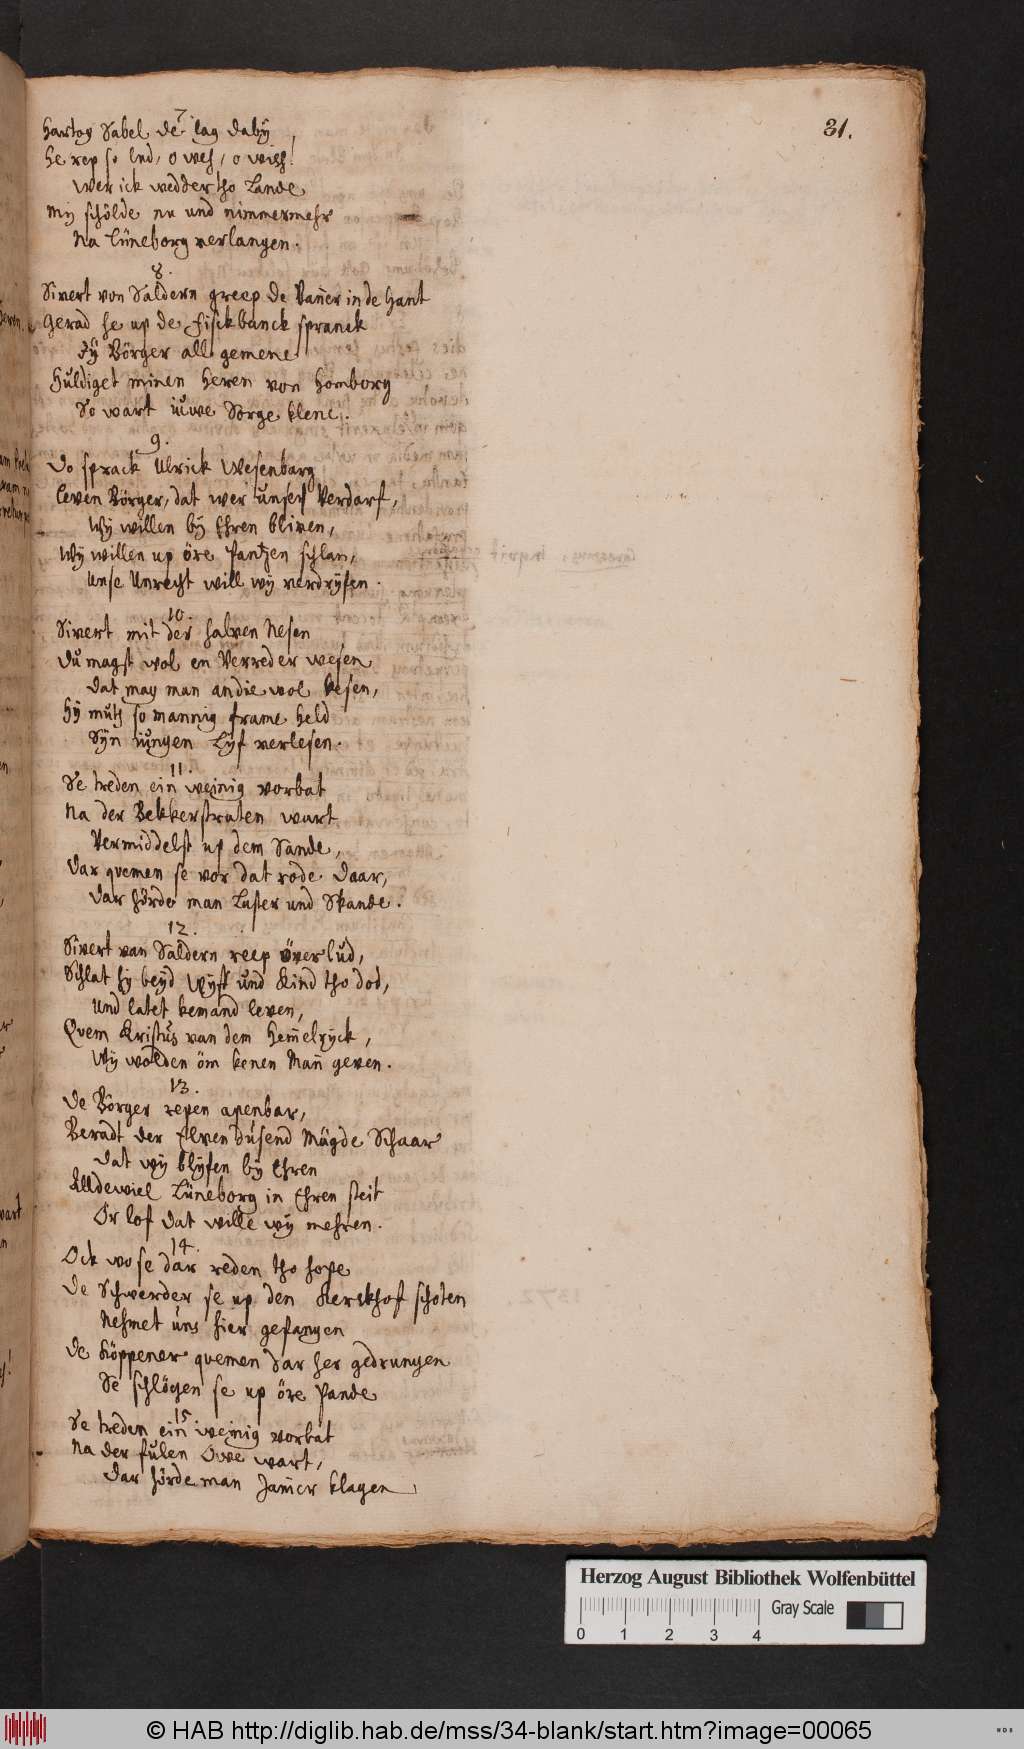 31.
7
Hartog Sabel de lag daby,
He rep so lud, o weh, o wieh!
Wer ick wedder tho Lande
My schölde nu und nimmermehr
Na Lüneborg verlangen.
8.
Sivert von Saldern greep de Bañer in de Hant
Gerad he up de Fisckbanck spranck
Jy Börger all gemene
Huldiget minen Heren von Homborg
So wart iuwe Sorge klene.
9.
Do sprack Ulrick Wesenbarg
Leven Börger, dat wer unser Verdarf,
Wy willen by Ehren bliven,
Wy willen up öre Pantzen schlan,
Unse Unrecht will wy verdryfen.
10.
Sivert mit der halven Nesen
Du magst wol en Verreder wesen
Dat mag man an die wol kesen,
Hy mutz so mannig frame Held
Syn iungen Lyf verlesen.
11.
Se treden ein weinig vorbat
Na der Bekkerstraten wart
Vermiddelst up dem Sande,
Dar quemen se vor dat rode Daar,
Dar hörde man Laster und Skande.
12.
Sivert van Saldern reep överlud,
Schlat hy beyd Wyff und Kind tho dod,
Und latet kemand leven,
Quem Kristus van dem Hem̃elryck,
Wy wolden öm kenen Mañ geven.
13.
De Börger repen apenbar,
Beradt der Elven dusend Mägde Schaar
Dat wy blyfen by Ehren
Alldewiel Lüneborg in Ehren steit
Ör lof dat wille wy mehren.
14.
Ock wo se dar reden tho hope
De Schwerder se up den Kerckhof schoten
Nehmet uns hier gefangen
De Köppener quemen dar her gedrungen
Se schlögen se up öre Pande
15
Se treden ein weinig vorbat
Na der fulen Owe wart,
Dar hörde man Jam̃er klagen,
Herzog August Bibliothek Wolfenbüttel
Gray Scale
0 1 2 3 4
© HAB http://diglib.hab.de/mss/34-blank/start.htm?image=00065